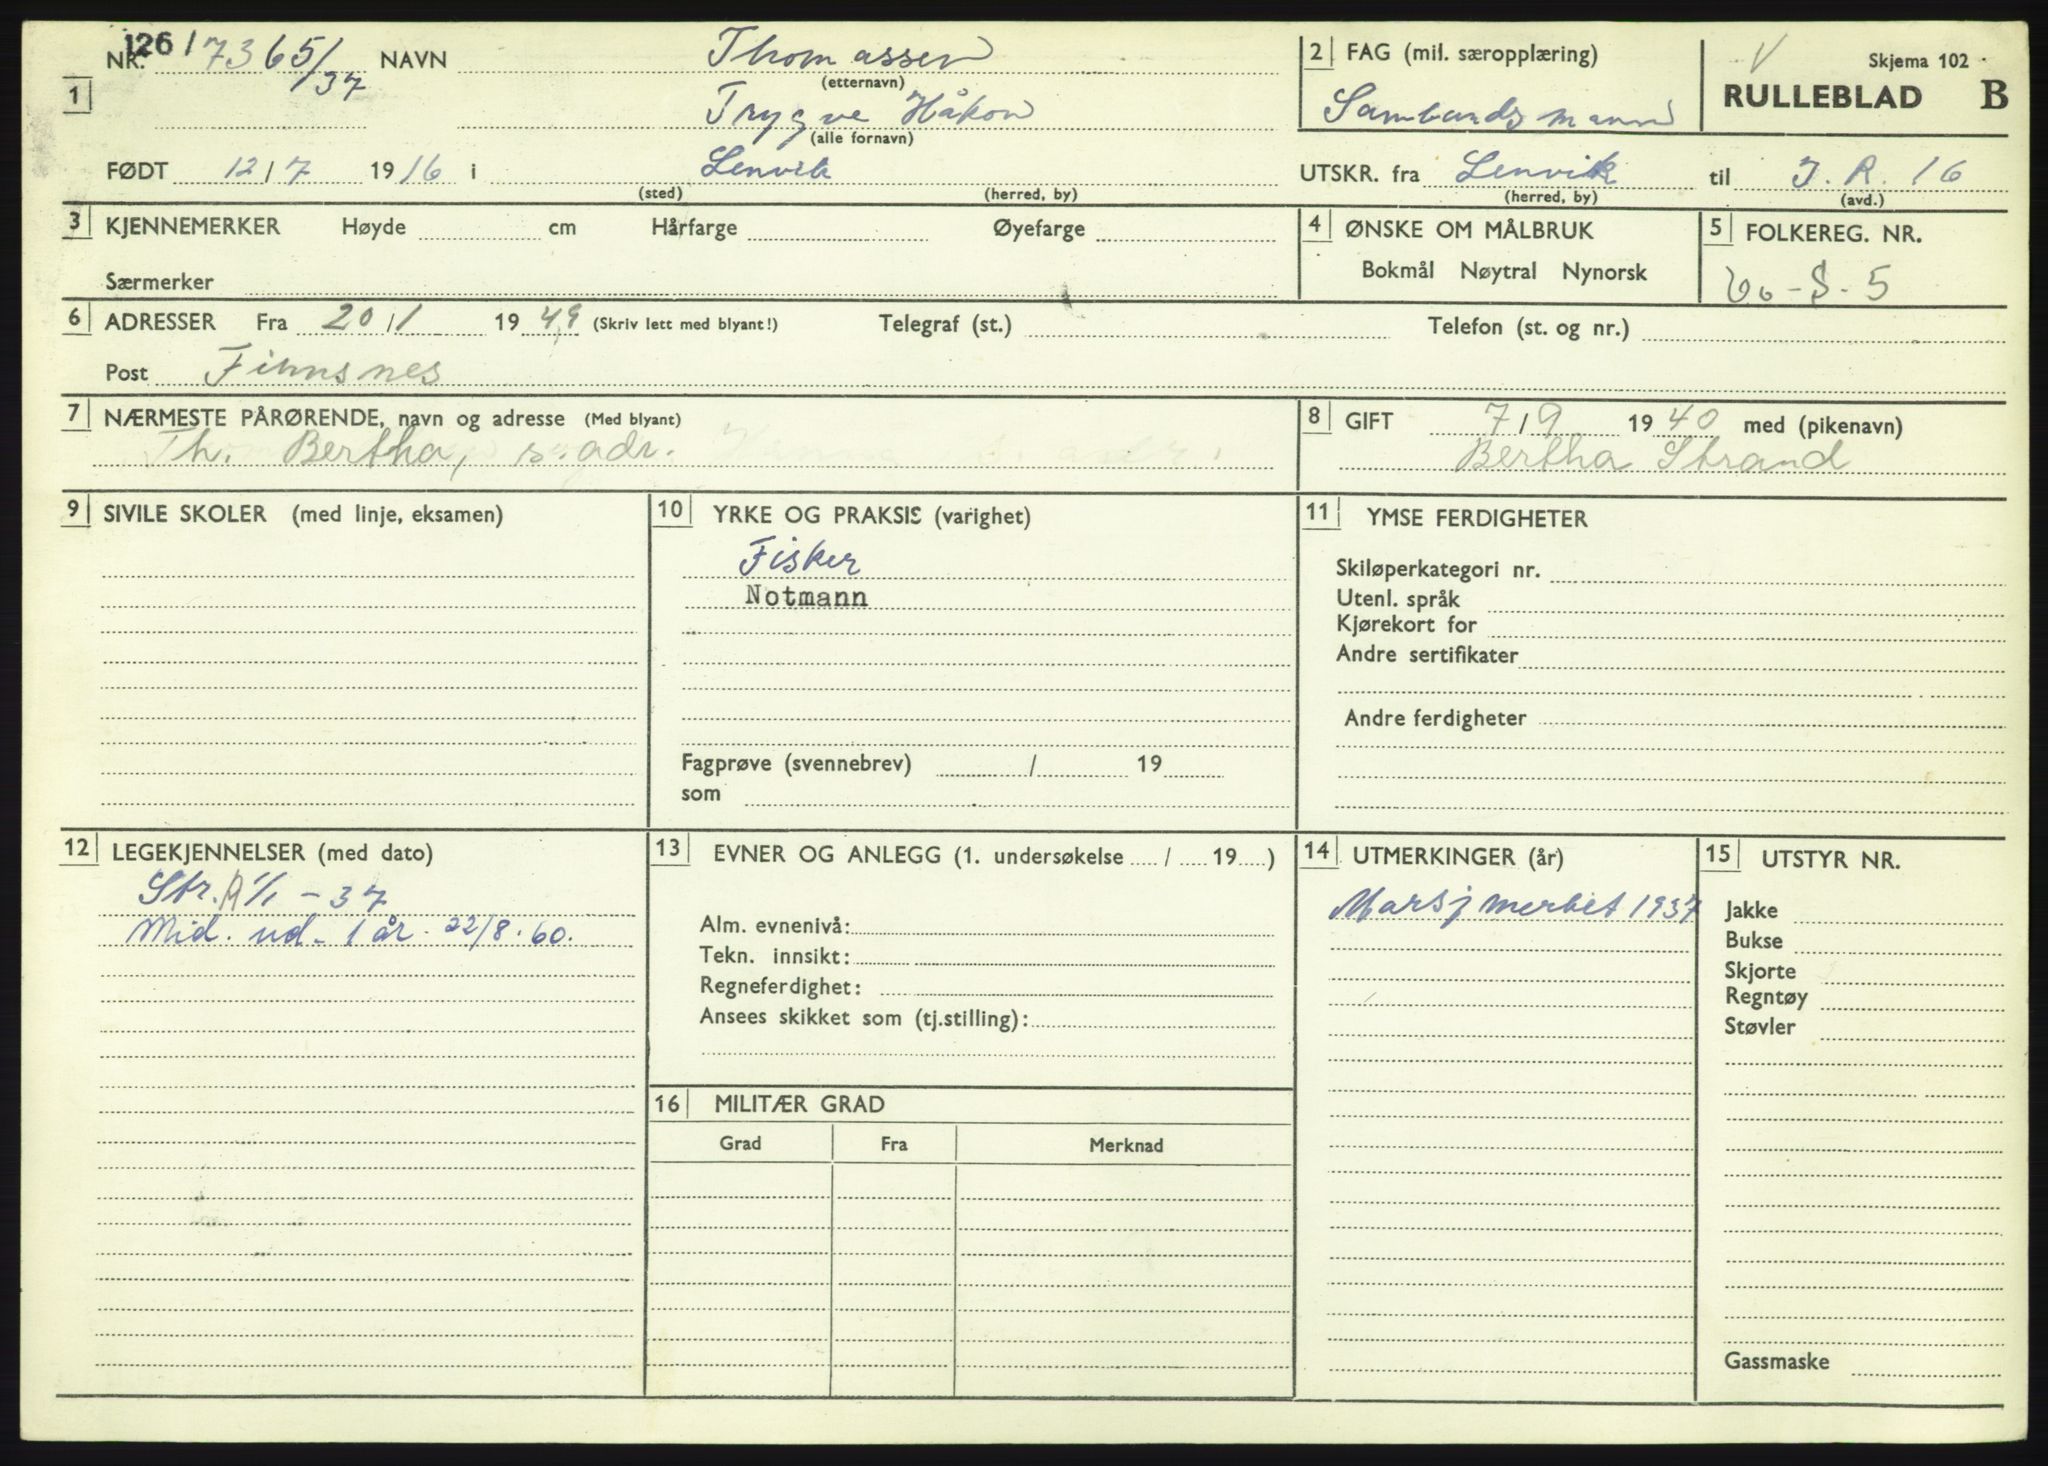 NR. 126/7365/37 NAVN Thomassen
(etternavn)
1
Trygve Håkon
(alle fornavn)
FØDT 12/7 1916 i Lenvik
(sted) (herred, by)
2 FAG (mil. særopplæring)
Sambandsmann
V Skjema 102
RULLEBLAD B
UTSKR. fra Lenvik til J. R. 16
(herred, by) (avd.)
3 KJENNEMERKER Høyde cm Hårfarge Øyefarge
Særmerker
4 ØNSKE OM MÅLBRUK
Bokmål Nøytral Nynorsk
5 FOLKEREG. NR.
60-S-5
6 ADRESSER Fra 20/1 1949 (Skriv lett med blyant!) Telegraf (st.) Telefon (st. og nr.)
Post Finnsnes
7 NÆRMESTE PÅRØRENDE, navn og adresse (Med blyant)
Th. Bertha, s. adr.
8 GIFT 7/9 1940 med (pikenavn)
Bertha Strand
9 SIVILE SKOLER (med linje, eksamen)
10 YRKE OG PRAKSIS (varighet)
Fisker
Notmann
Fagprøve (svennebrev) / 19
som
11 YMSE FERDIGHETER
Skiløperkategori nr.
Utenl. språk
Kjørekort for
Andre sertifikater
Andre ferdigheter
12 LEGEKJENNELSER (med dato)
Str. A 1/1 - 37
Mid. ud. 1 år. 22/8.60.
13 EVNER OG ANLEGG (1. undersøkelse / 19 )
Alm. evnenivå:
Tekn. innsikt:
Regneferdighet:
Ansees skikket som (tj.stilling):
16 MILITÆR GRAD
Grad Fra Merknad
14 UTMERKINGER (år)
Marsjmerket 1937
15 UTSTYR NR.
Jakke
Bukse
Skjorte
Regntøy
Støvler
Gassmaske